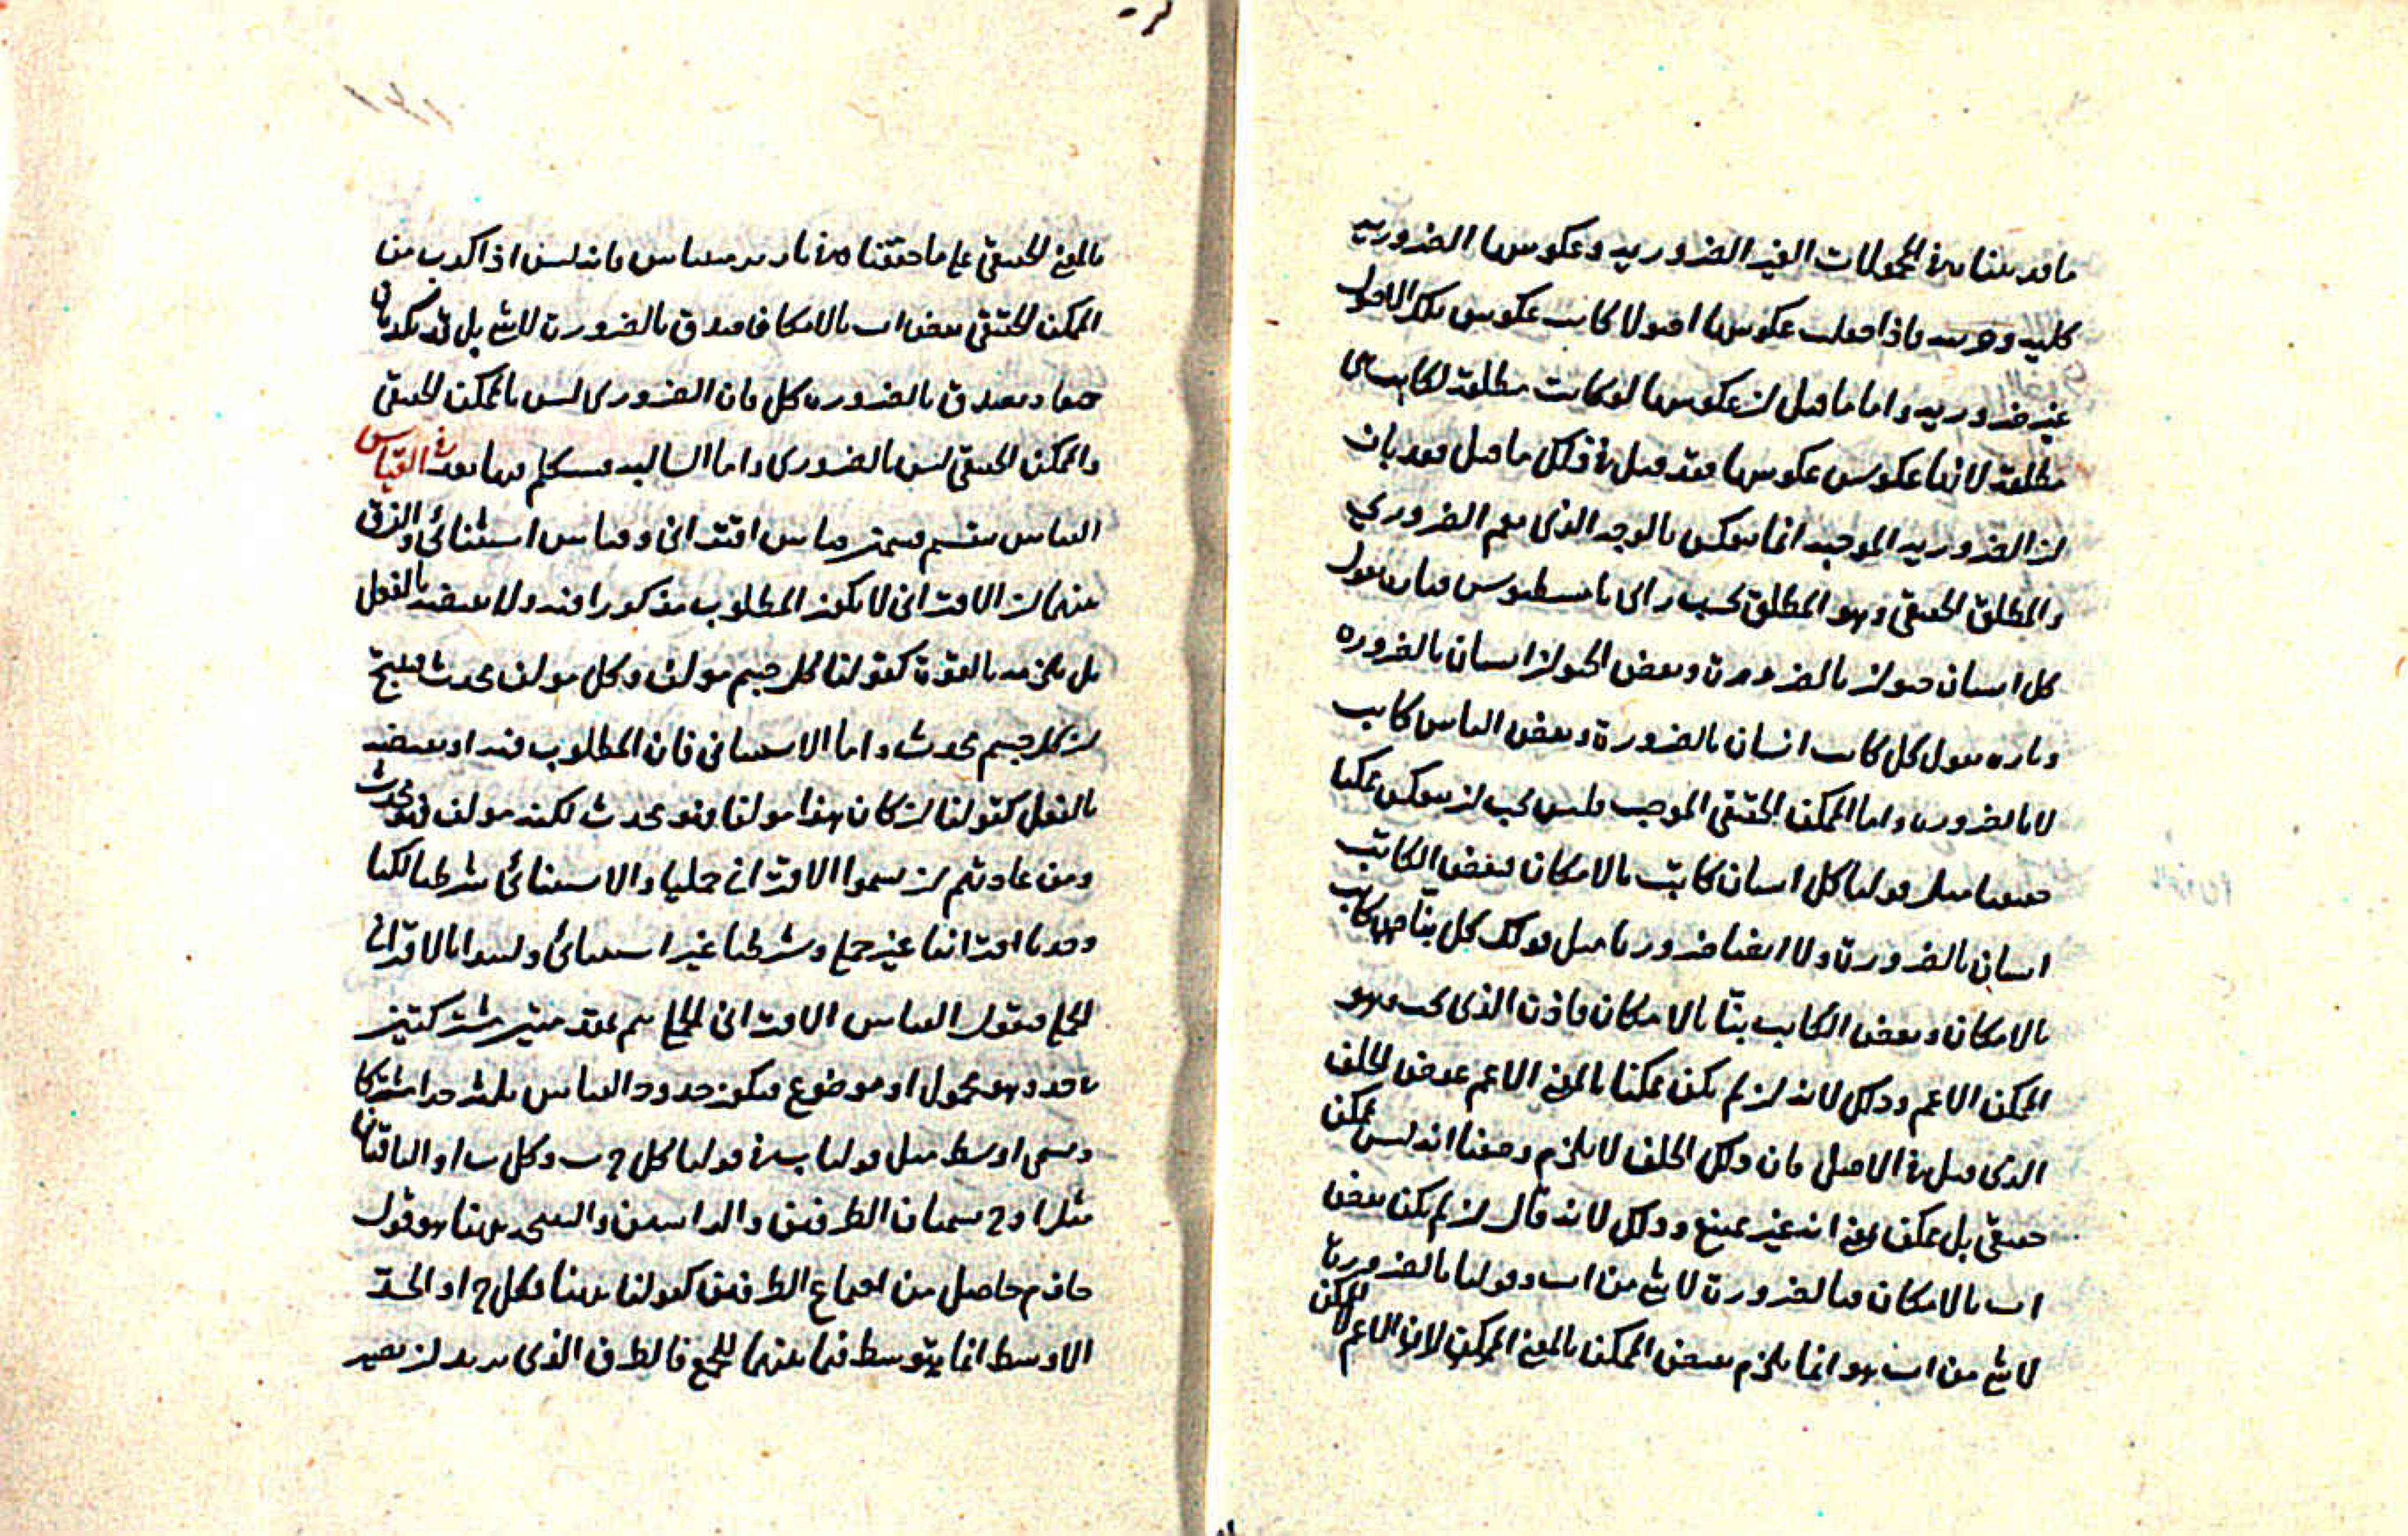 ما قد بينا من المحمولات الغير الضرورية وعكوسها الضرورية
كلية وجزئية فاذا جعلت عكوسها اصولا كانت عكوس تلك الاصول
غير ضرورية واما ما قيل ان عكوسها لو كانت مطلقة لكانت هي
مطلقة لانها عكوس عكوسها فقد قيل في ذلك ما قيل فقد بان
ان الضرورية الموجبة انما تنعكس بالوجه الذى يعم الضروري
والمطلق الحقيقى وهو المطلق بحسب راى ثامسطيوس فتارة نقول
كل انسان حيوان بالضرورة وبعض الحيوان انسان بالضرورة
وتارة نقول كل كاتب انسان بالضرورة وبعض الناس كاتب
لا بالضرورة واما الممكن الحقيقى الموجب فليس يجب ان ينعكس ممكنا
حقيقيا مثل قولنا كل انسان كاتب بالامكان فبعض الكاتب
انسان بالضرورة ولا ايضا ضروريا مثل قولك كل بنّا فهو كاتب
بالامكان وبعض الكاتب بنّا بالامكان فاذن الذى يجب فهو
الممكن الاعم وذلك لانه ان لم يكن ممكنا بالمعنى الاعم عرض الخلف
الذى قيل في الاصل فان ذلك الخلف لا يلزم وضعنا انه ليس بممكن
حقيقى بل ممكن بمعنى انه غير ممتنع وذلك لانه قال ان لم يكن بعض
ا ب بالامكان فبالضرورة لا شئ من ا ب وقولنا بالضرورة
لا شئ من ا ب هو انما يلزم نقيض الممكن بالمعنى الاعم لا الممكن
بالمعنى الحقيقى على ما حققنا في باريرمينياس فانه ليس اذا كذب من
الممكن الحقيقى بعض ا ب بالامكان صدق بالضرورة لا شئ بل قد يكذبان
جميعا ويصدق بالضرورة كل فان الضرورى ليس بالممكن الحقيقى
والممكن الحقيقى ليس بالضرورى واما السالبة فسنتكلم فيها بعد في القياس
القياس ينقسم قسمين قياس اقترانى وقياس استثنائى والفرق
بينهما ان الاقترانى لا يكون المطلوب مذكورا فيه ولا نقيضه بالفعل
بل يكون فيه بالقوة كقولنا كل جسم مولف وكل مولف محدث فينتج
ان كل جسم محدث واما الاستثنائى فان المطلوب فيه او نقيضه
بالفعل كقولنا ان كان هذا مولفا فهو محدث لكنه مولف فهو محدث
ومن عادتهم ان يسموا الاقترانى حمليا والاستثنائى شرطيا لكنا
وجدنا اقترانيا غير حملى وشرطيا غير استثنائى ولنبدا بالاقترانى
الحملى فنقول القياس الاقترانى الحملى يتم بمقدمتين مشتركتين
بحد وهو محمول او موضوع فيكون حدود القياس ثلثة حدا مشتركا
ويسمى اوسط مثل قولنا ب في قولنا كل ج ب وكل ب ا والباقيان
مثل ا و ج يسميان الطرفين والراسين والنتيجة ههنا هو قول
جازم حاصل من اجتماع الطرفين كقولنا ههنا فكل ج ا والحد
الاوسط انما يتوسط فيما بينهما للجمع فالطرف الذى يريد ان يصير